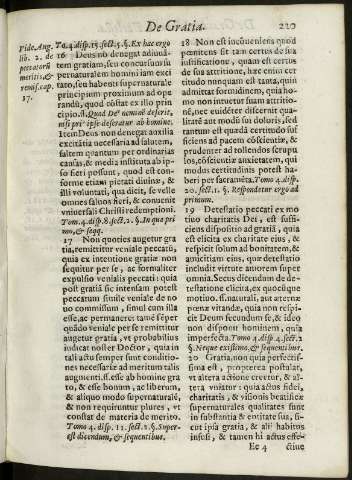 De Gratia.
220
Vide. Aug.
lib. 2. de
peccatorũ
meritis, &
remiss. cap.
17.
To. 4. disp. 15. sect. 5. §. Ex hac ergo
16 Deus nõ denegat adiuuã-
tem gratiam, seu concursum su
pernaturalem homini iam exci
tato, seu habenti supernaturale
principium proximum ad ope
randũ, quod cõstat ex illo prin
cipio. s. Quod Deus neminẽ deserit,
nisi priꝰ ipse deseratur ab homine.
Item Deus non denegat auxilia
excitãtia necessaria ad salutem,
saltem quantum per ordinarias
causas, & media instituta ab ip-
so fieri possunt, quod est con-
forme etiam pietati diuinæ, &
illi voluntati, qua dicit, se velle
omnes saluos fieri, & conuenit
vniuersali Christi redemptioni.
Tom. 4. disp. 8. sect. 2. §. In qua pri
mo, & seqq.
17 Non quoties augetur gra
tia, remittitur veniale peccatũ,
quia ex intentione gratiæ non
sequitur per se, ac formaliter
expulsio venialis peccati: quia
post gratiã sic intensam potest
peccatum simile veniale de no
uo commissum, simul cum illa
esse, ac permanere: tamẽ sæpe
quãdo veniale per se remittitur
augetur gratia, vt probabilius
iudicat noster Doctor, quia in
tali actu semper sunt conditio-
nes necessariæ ad meritum talis
augmenti. ss. esse ab homine gra
to, & esse bonum, ac liberum,
& aliquo modo supernaturalẽ,
& non requiruntur plures, vt
constat de materia de merito.
Tomo. 4. disp. 11. sect. 2. §. Super-
est dicendum, & sequentibus.
18 Non est incõueniens quod
pœnitens sit tam certus de sua
insufficientia, quam est certus
de sua attritione, hæc enim cer
titudo nunquam est tanta, quæ
admittat formidinem, quia ho-
mo non intuetur suam attritio-
nẽ, nec euidẽter discernit quã-
ta aut qualis sit doloris, sed
tantum est quædã certitudo suf
ficiens ad pacem conscientiæ, &
prudenter ad tollendos scrupu
los, cõscientiæ anxietatem, qui
modus certitudinis potest ha-
beri per sacramẽta. Tomo 4. disp.
20. sect. 1. §. Respondetur ergo ad
primum.
19 Detestatio peccati ex mo
tiuo charitatis Dei, est suffi-
ciens dispositio ad gratiã, quia
est elicita ex charitate eius, &
respicit solum ad bonitatem, &
amicitiam eius, quæ detestatio
includit virtute amorem super
omnia. Secus dicendum de de-
testatione elicita, ex quocũque
motiuo. ss. naturali, aut æternæ
pœnæ vitandæ, quia non respi-
cit Deum secundum se, & ideo
non disponit hominem, quia
imperfecta. Tomo 4. disp 4. sect. 2
§. Neque existimo, & sequentibus.
20 Gratia, non quia perfectis-
sima est, propterea postulat,
vt altera actione creetur, & al-
tera vniatur: quia actus fidei,
charitatis, & visionis beatificæ
supernaturales qualitates sunt
in substantia & entitate sua, si-
cut ipsa gratia, & alij habitus
infusi, & tamen hi actus effe-
Ee 4
ctiue